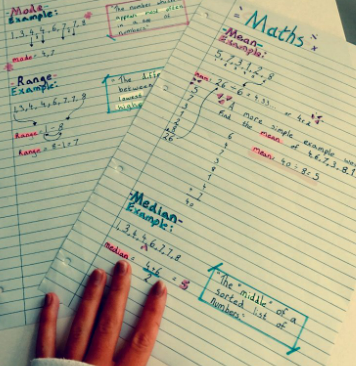 Mode-
Example:
1, 3, 4, 4, 6, 7, 7, 8
mode = 4, 7
The number which
appears most often
in a set of
numbers
Range-
Example:
1, 3, 4, 4, 6, 7, 7, 8
Range = 1 - 8
Range = 8-1=7
"The
between
lowest
Maths
Mean-
Example:
5, 7, 3, 1, 2, 8
mean: 26 ÷ 6 = 4.33
5
26
more simple example
Find the mean
of 4, 6, 7, 3, 8, 1
mean: 40 ÷ 8 = 5
40
Median-
Example:
1, 3, 4, 4, 6, 7, 7, 8
median = 4+6 = 5
2
"The "middle" of a
sorted list of
numbers"